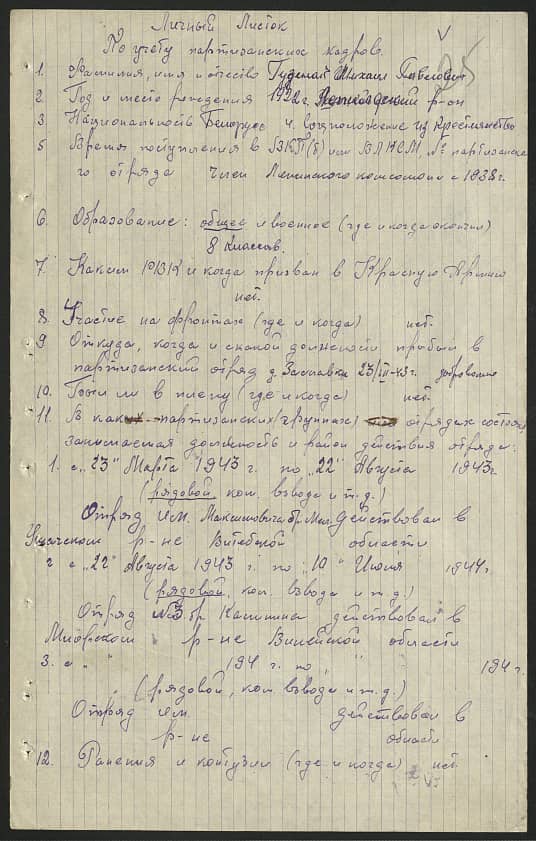 Личный Листок
25
По учету партизанских кадров.
1. Фамилия, имя и отчество Михаил Павлович
2. Год и место рождения 192 г. р-он
3. Национальность Белорус 4. Соцположение из крестьянство
5 Время поступления в ВКП(б) или ВЛКСМ, № партизанска
го отряда член Ленинского комсомола с 1938 г.
6. Образование: общее и военное (где и когда окончил)
8 классов.
7. Каким РВК и когда призван в Красную Армию
нет.
8. Участие на фронтах (где и когда) нет.
9 Откуда, когда и с какой должности прибыл в
партизанский отряд д. Заславка 23/III-43 г. добровольно
10. Были ли в плену (где и когда) нет.
11. В каких партизанских (группах) отрядах состоял
занимаемая должность и район действия отряда:
1. с „23" Марта 1943 г. по „22" Августа 1943 г
(рядовой, ком. взвода и т.д.)
Отряд им. Максимовича бр. Мел. Действовал в
Ушачском р-не Витебской области
2 с „22" Августа 1943 г. по „10" Июня 1944 г.
(рядовой, ком. взвода и т.д.)
Отряд №3 бр Калинина действовал в
Миорском р-не Вилейской области
3. с „ " 194 г. по „ " 194 г.
(рядовой, ком. взвода и т.д.)
Отряд им. действовал в
р-не области
12. Ранения и контузии (где и когда) нет.